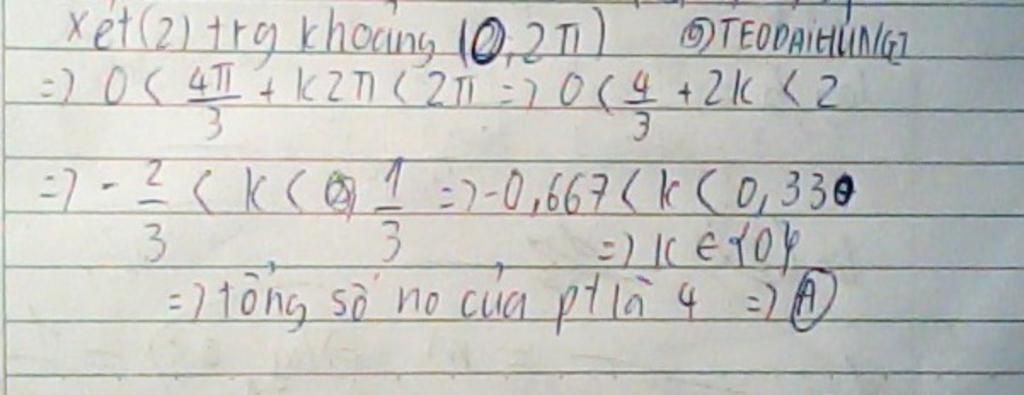 xét(2) trg khoảng (0,2π) ©TEODAIHUNG1
=> 0 < 4π/3 + k2π < 2π => 0 < 4/3 + 2k < 2
=> -2/3 < k < 1/3 => -0,667 < k < 0,33
=> k ∈ {0}
=> tổng số no của pt là 4 => A